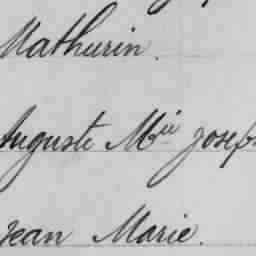 Mathurin.
Auguste Mie Joseph
Jean Marie.